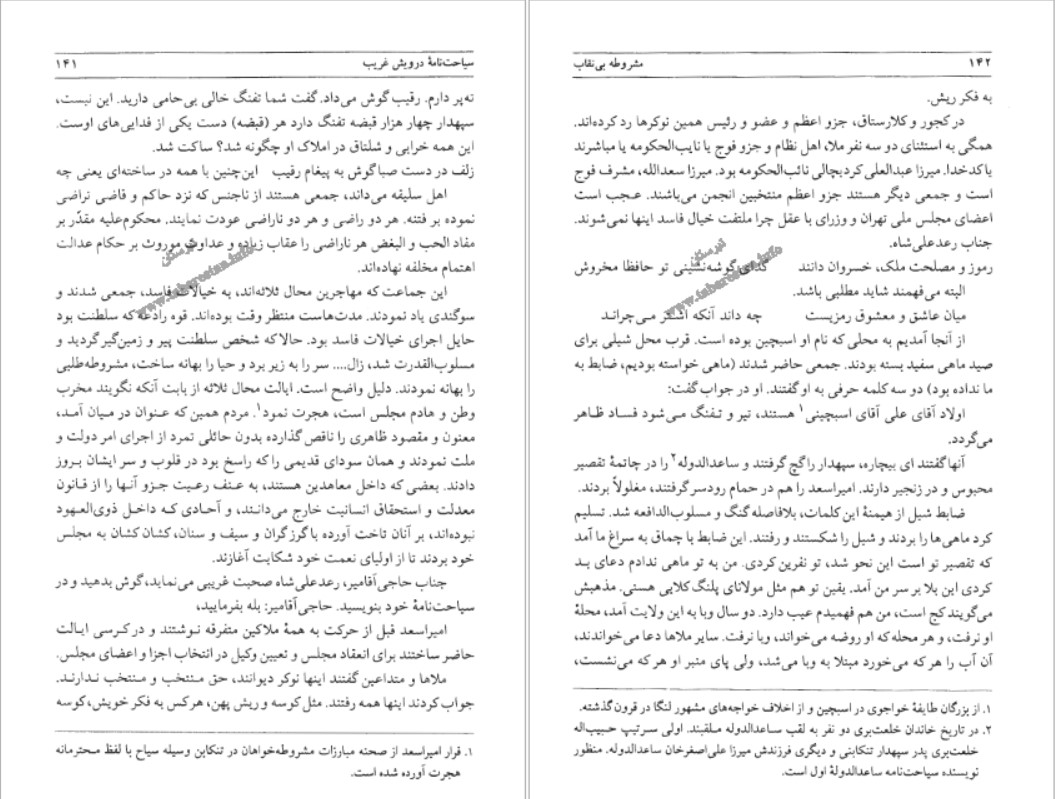 سیاحت‌نامهٔ درویش غریب ۱۴۱
ته‌پر دارم. رقیب گوش می‌داد. گفت شما تفنگ خالی بی‌حامی دارید. این نیست،
سپهدار چهار هزار قبضه تفنگ دارد هر (قبضه) دست یکی از فدایی‌های اوست.
این همه خرابی و شلتاق در املاک او چگونه شد؟ ساکت شد.
زلف در دست صبا گوش به پیغام رقیب این‌چنین با همه در ساخته‌ای یعنی چه
اهل سلیقه می‌داند، جمعی هستند از ناجنس که نزد حاکم و قاضی تراضی
نموده بر فتنه. هر دو راضی و هر دو ناراضی عودت نمایند. محکوم‌علیه مقدّر بر
مفاد الحب و البغض هر ناراضی را عقاب زیاده و عداوت موروث بر حکام عدالت
اهتمام مخلفه نهاده‌اند.
این جماعت که مهاجرین محال ثلاثه‌اند، به خیالات فاسد، جمعی شدند و
سوگندی یاد نمودند. مدت‌هاست منتظر وقت بوده‌اند. قوه رادعه که سلطنت بود
حایل اجرای خیالات فاسد بود. حالا که شخص سلطنت پیر و زمین‌گیر گردید و
مسلوب‌القدرت شد، زال.... سر را به زیر برد و حیا را بهانه ساخت، مشروطه‌طلبی
را بهانه نمودند. دلیل واضح است. ایالت محال ثلاثه از بابت آنکه نگویند مخرب
وطن و هادم مجلس است، هجرت نمود۱. مردم همین که عنوان در میان آمد،
معنون و مقصود ظاهری را ناقص گذارده بدون حائلی تمرد از اجرای امر دولت و
ملت نمودند و همان سودای قدیمی را که راسخ بود در قلوب و سر ایشان بروز
دادند. بعضی که داخل معاهدین هستند، به عنف رعیت جزو آنها را از قانون
معدلت و استحقاق انسانیت خارج می‌دانند، و آحادی که داخل ذوی‌العهود
نبوده‌اند، بر آنان تاخت آورده با گرز گران و سیف و سنان، کشان کشان به مجلس
خود بردند تا از اولیای نعمت خود شکایت آغازند.
جناب حاجی آقامیر، رعدعلی‌شاه صحبت غریبی می‌نماید، گوش بدهید و در
سیاحت‌نامهٔ خود بنویسید. حاجی آقامیر: بله بفرمایید،
امیراسعد قبل از حرکت به همهٔ ملاکین متفرقه نوشتند و در کرسی ایالت
حاضر ساختند برای انعقاد مجلس و تعیین وکیل در انتخاب اجزا و اعضای مجلس.
ملاها و متداعین گفتند اینها نوکر دیوانند، حق منتخب و منتخب ندارند.
جواب کردند اینها همه رفتند. مثل کوسه و ریش پهن، هرکس به فکر خویش، کوسه
۱. فرار امیراسعد از صحنه مبارزات مشروطه‌خواهان در تنکابن وسیله سیاح با لفظ محترمانه
هجرت آورده شده است.
۱۴۲ مشروطه بی‌نقاب
به فکر ریش.
در کجور و کلارستاق، جزو اعظم و عضو و رئیس همین نوکرها رد کرده‌اند.
همگی به استثنای دو سه نفر ملا، اهل نظام و جزو فوج یا نایب‌الحکومه یا مباشرند
یا کدخدا. میرزا عبدالعلی کردیچالی نائب‌الحکومه بود. میرزا سعدالله، مشرف فوج
است و جمعی دیگر هستند جزو اعظم منتخبین انجمن می‌باشند. عجب است
اعضای مجلس ملی تهران و وزرای با عقل چرا ملتفت خیال فاسد اینها نمی‌شوند.
جناب رعدعلی‌شاه.
رموز و مصلحت ملک، خسروان دانند گدای گوشه‌نشینی تو حافظا مخروش
البته می‌فهمند شاید مطلبی باشد.
میان عاشق و معشوق رمزیست چه داند آنکه اشتر می‌چراند
از آنجا آمدیم به محلی که نام او اسبچین بوده است. قرب محل شیلی برای
صید ماهی سفید بسته بودند. جمعی حاضر شدند (ماهی خواسته بودیم، ضابط به
ما نداده بود) دو سه کلمه حرفی به او گفتند. او در جواب گفت:
اولاد آقای علی آقای اسبچینی۱ هستند، تیر و تفنگ می‌شود فساد ظاهر
می‌گردد.
آنها گفتند ای بیچاره، سپهدار را گچ گرفتند و ساعدالدوله۲ را در چاتمهٔ تقصیر
محبوس و در زنجیر دارند. امیراسعد را هم در حمام رودسر گرفتند، مغلولاً بردند.
ضابط شیل از هیمنهٔ این کلمات، بلافاصله گنگ و مسلوب‌الدافعه شد. تسلیم
کرد ماهی‌ها را بردند و شیل را شکستند و رفتند. این ضابط با چماق به سراغ ما آمد
که تقصیر تو است این نحو شد، تو نفرین کردی. من به تو ماهی ندادم دعای بد
کردی این بلا بر سر من آمد. یقین تو هم مثل مولانای پلنگ‌کلایی هستی. مذهبش
می‌گویند کج است، من هم فهمیدم عیب دارد. دو سال وبا به این ولایت آمد، محلهٔ
او نرفت، و هر محله که او روضه می‌خواند، وبا نرفت. سایر ملاها دعا می‌خواندند،
آن آب را هر که می‌خورد مبتلا به وبا می‌شد، ولی پای منبر او هر که می‌نشست،
۱. از بزرگان طایفهٔ خواجوی در اسبچین و از اخلاف خواجه‌های مشهور لنگا در قرون گذشته.
۲. در تاریخ خاندان خلعت‌بری دو نفر به لقب ساعدالدوله ملقبند. اولی سرتیپ حبیب‌اله
خلعت‌بری پدر سپهدار تنکابنی و دیگری فرزندش میرزا علی‌اصغرخان ساعدالدوله. منظور
نویسنده سیاحت‌نامه ساعدالدولهٔ اول است.
تبرستان
www.tabarestan.info
تبرستان
www.tabarestan.info